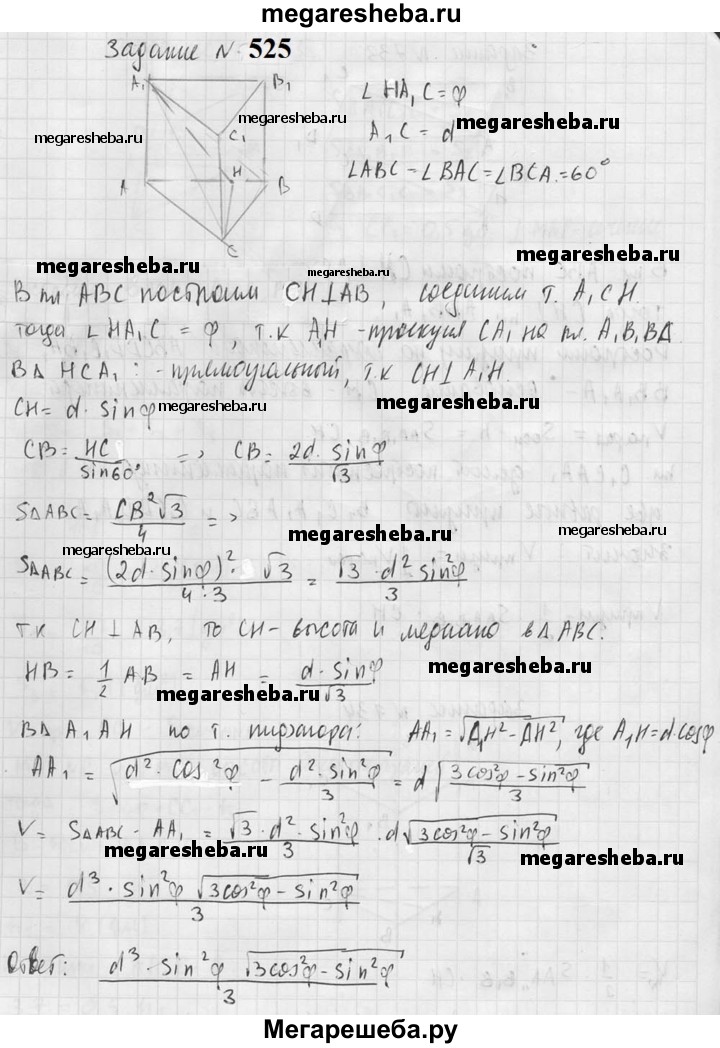 megaresheba.ru
Задание №. 525
A₁ B₁ ∠ HA₁C = φ
megaresheba.ru
megaresheba.ru C₁ A₁C = d megaresheba.ru
H ∠ABC = ∠BAC = ∠BCA = 60°
A B
C
megaresheba.ru megaresheba.ru megaresheba.ru
В пл ABC построим CH⊥AB, соединим т. A₁CH.
тогда ∠ HA₁C = φ, т.к AH - проекция CA₁ на пл. A₁B₁BA
В Δ HCA₁: - прямоугольный, т.к CH⊥A₁H.
CH = d · sinφ megaresheba.ru megaresheba.ru
CB = HC/sin60° => CB = 2d · sinφ/√3
SΔABC = CB²√3/4 => megaresheba.ru
megaresheba.ru megaresheba.ru
SΔABC = (2d·sinφ)² · √3/4·3 = √3 · d² sin²φ/3
т к CH ⊥ AB, то CH - высота и медиана в ΔABC.
HB = 1/2 AB = AH = d · sinφ/√3 megaresheba.ru
megaresheba.ru
В Δ A₁AH по т. пифагора: AA₁ = √A₁H² - AH², где A₁H = d·cosφ
AA₁ = √d² · cos²φ - d² · sin²φ/3 = d√3cos²φ - sin²φ/3
V = SΔABC · AA₁ = √3 · d² · sin²φ/3 · d√3cos²φ - sin²φ/√3
megaresheba.ru megaresheba.ru
V = d³ · sin²φ √3cos²φ - sin²φ/3
Ответ: d³ · sin²φ √3cos²φ - sin²φ/3
Мегарешеба.ру